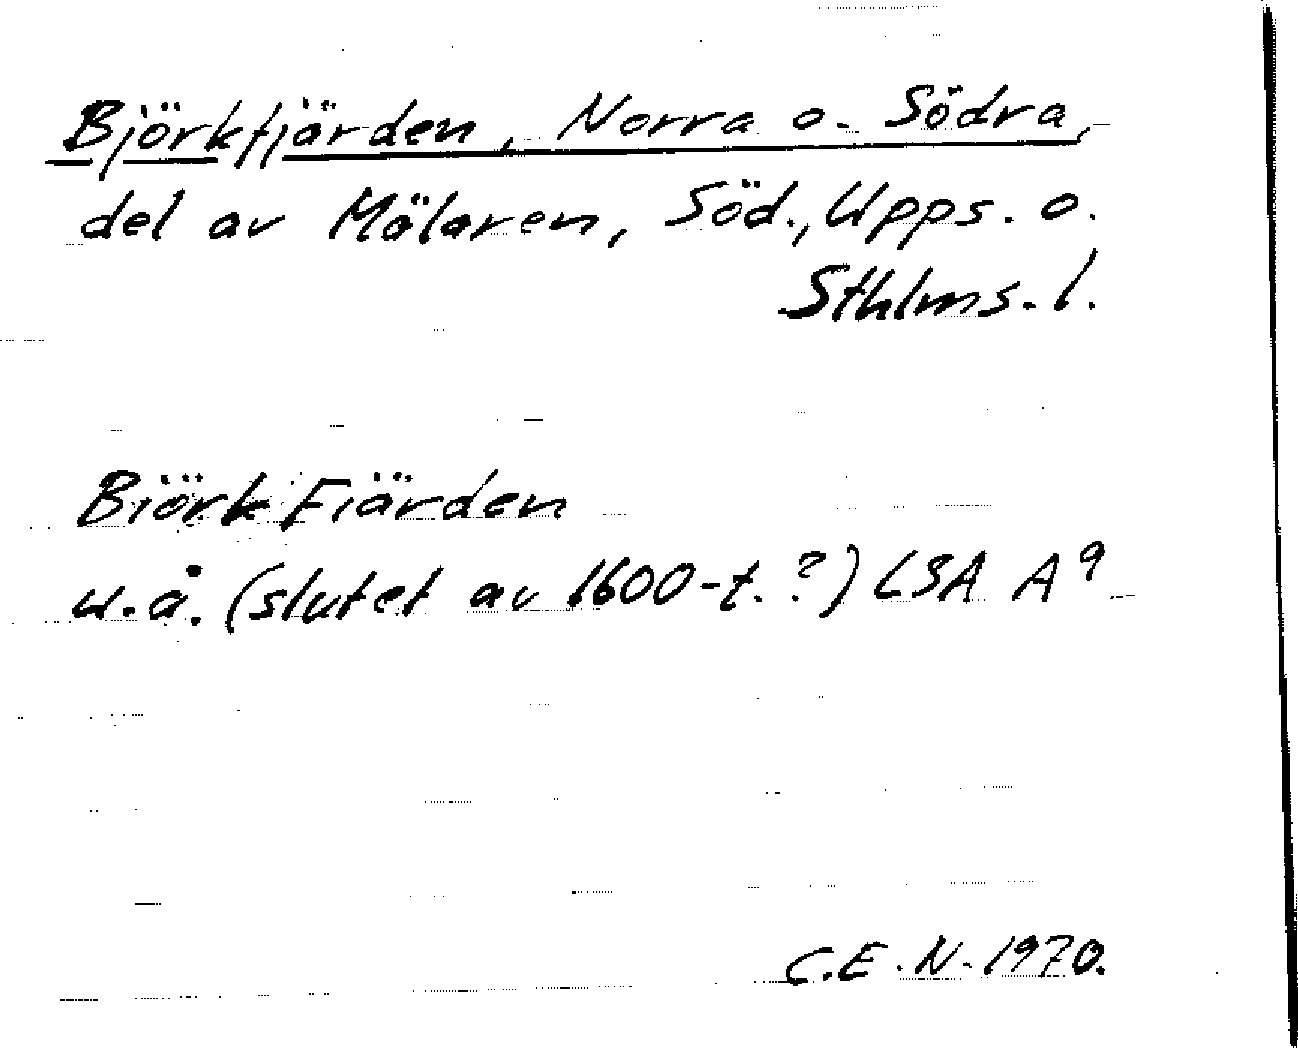 Björkfjärden, Norra o. Södra,
del av Mälaren, Söd., Upps. o.
Sthlms. l.
Biörk Fiärden
u.å. (slutet av 1600-t.?) LSA A⁹
C.E.N. 1970.